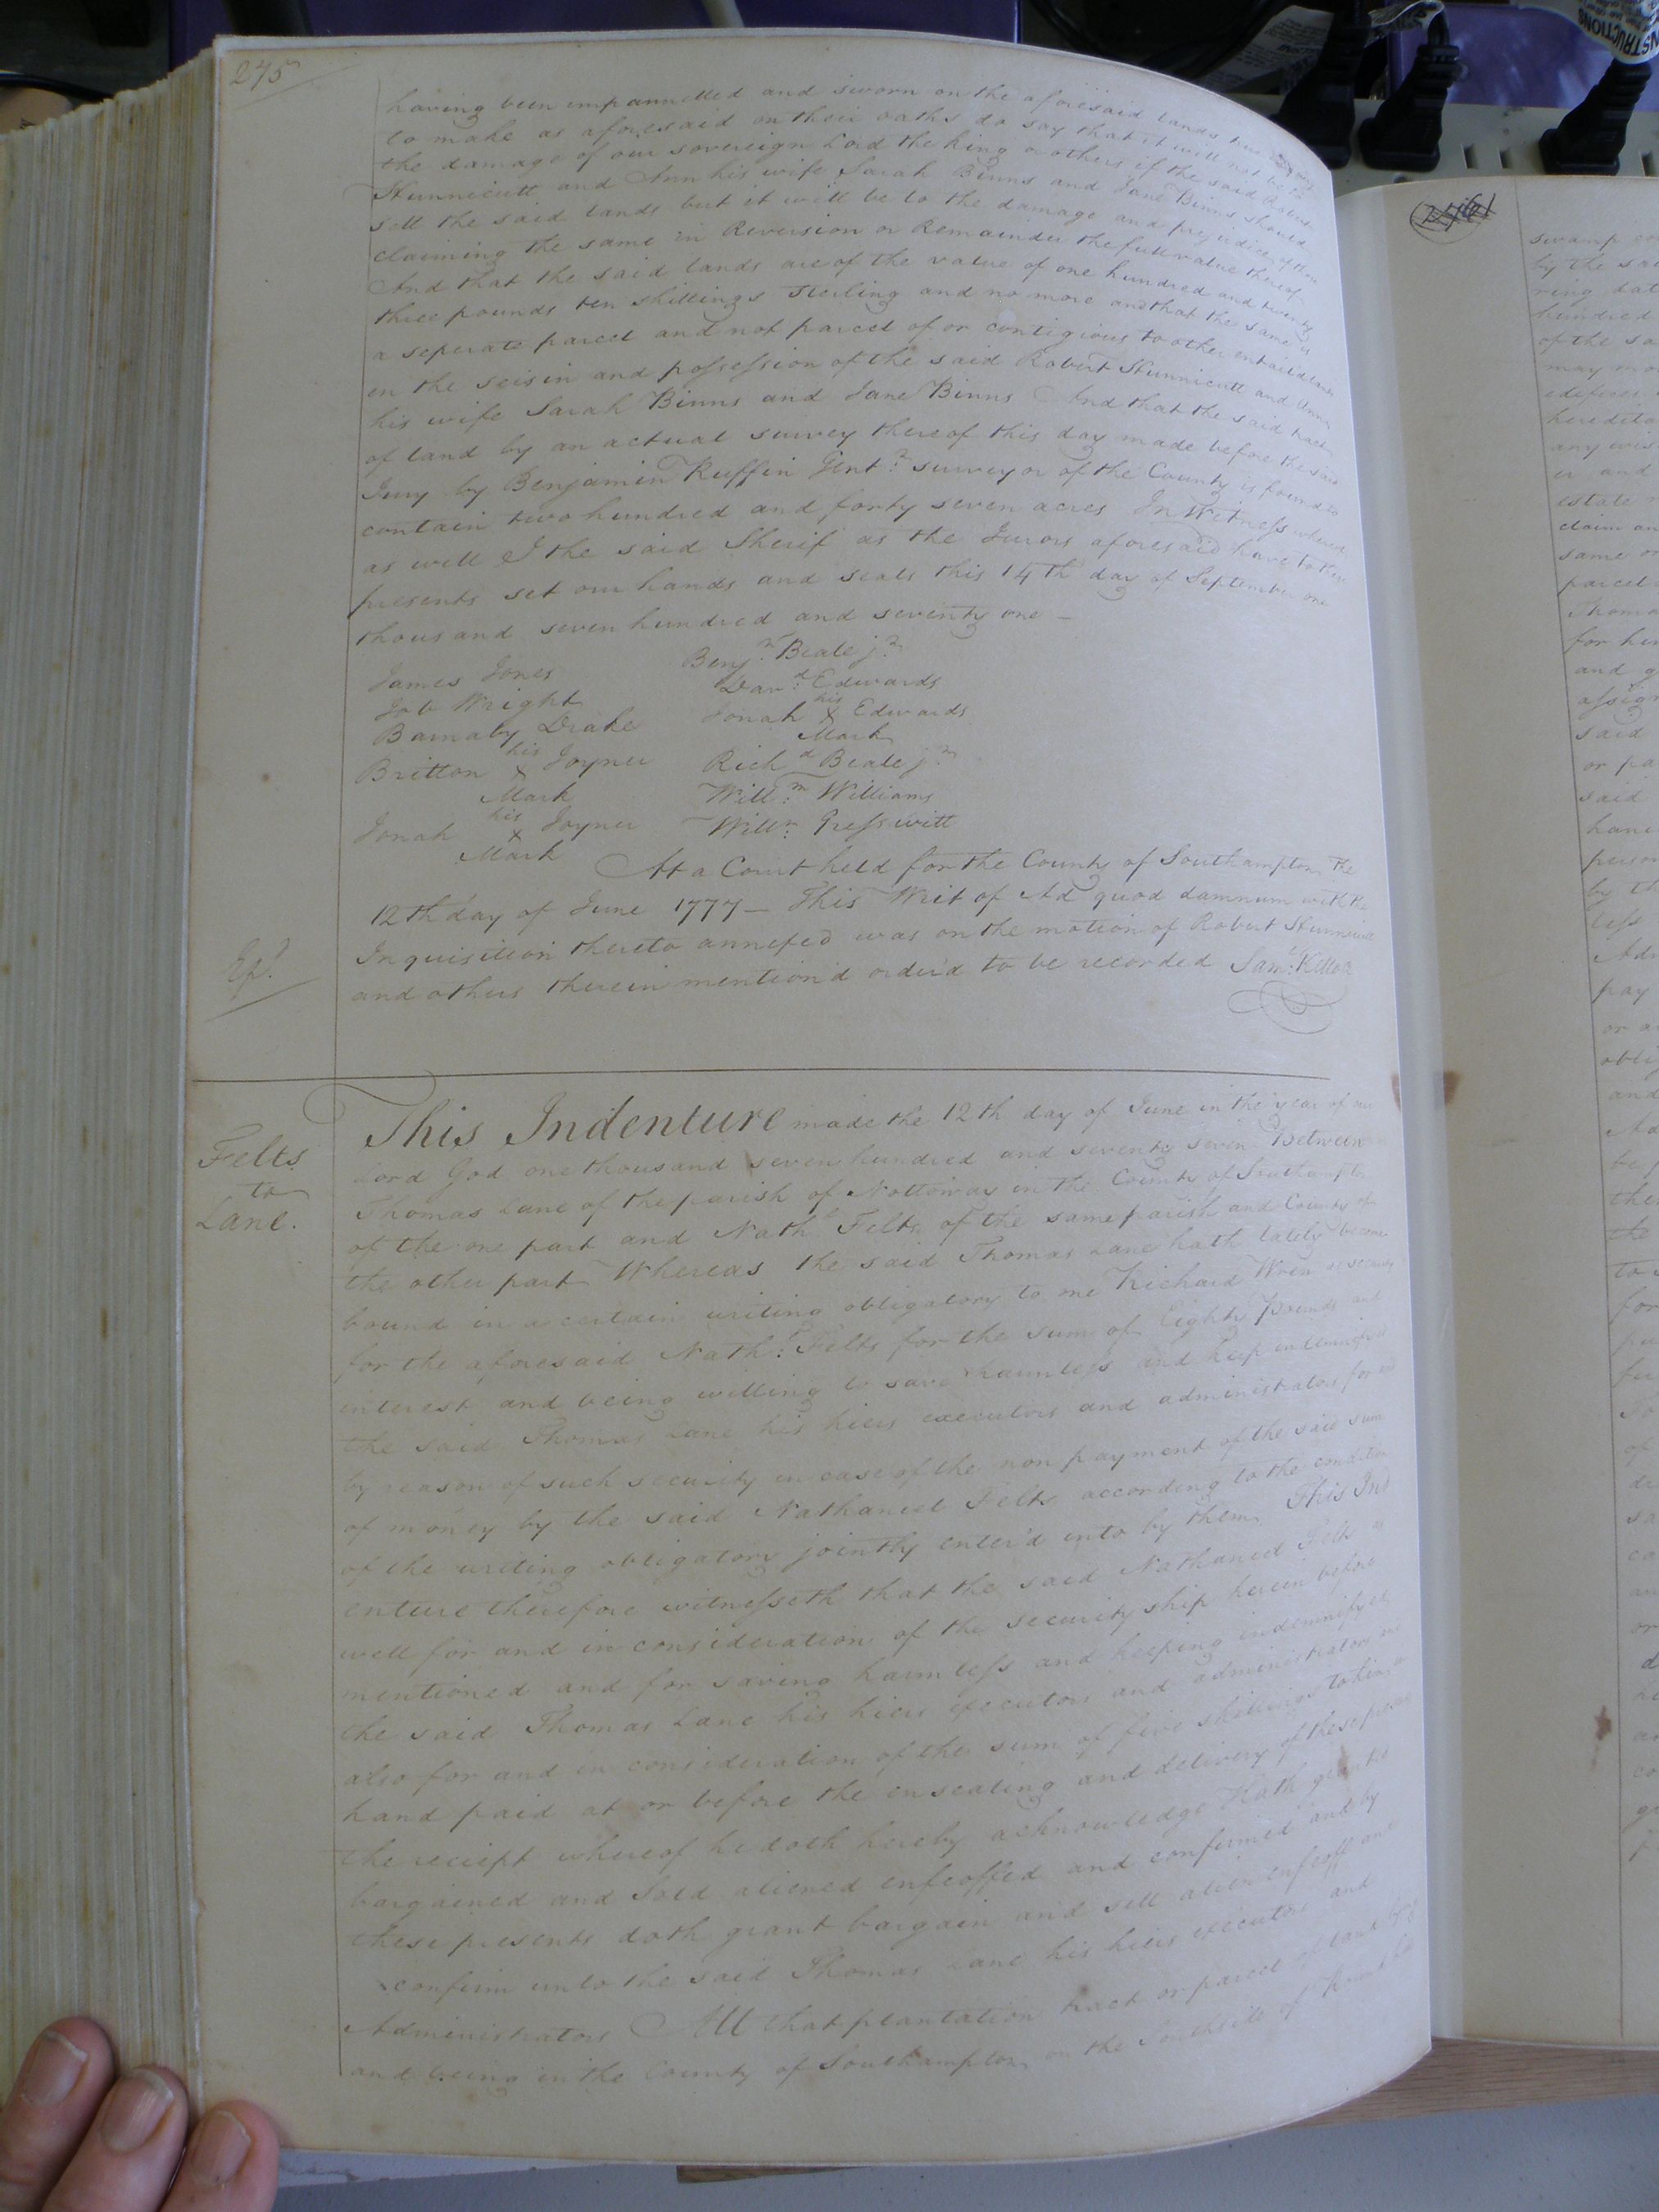 275
having been impannelled and sworn on the aforesaid lands
to make as aforesaid on their oaths do say that it will not be to
the damage of our sovereign Lord the King or others if the said Robert
Hunnicutt and Ann his wife Sarah Binns and Jane Binns should
sell the said lands but it will be to the damage and prejudice of those
claiming the same in Reversion or Remainder the full value thereof
And that the said lands are of the value of one hundred and twenty
three pounds ten shillings Sterling and no more and that the same is
a seperate parcel and not parcel of or contigious to other entailed lands
in the seisin and possession of the said Robert Hunnicutt and Ann
his wife Sarah Binns and Jane Binns And that the said tract
of land by an actual survey thereof this day made before the said
Jury by Benjamin Ruffin Gent surveyor of the County is found to
contain two hundred and forty seven acres In Witness whereof
as well I the said Sherif as the Jurors aforesaid have to these
presents set our hands and seals this 14th day of September one
thousand seven hundred and seventy one –
James Jones Benj.n Beale jr
Job Wright Dav.d Edwards
Barnaby Drake Jonah his X Mark Edwards
Britton his X Mark Joyner Richd Beale jr
Will.m Williams
Jonah his X Mark Joyner Will.m Presswitt
At a Court held for the County of Southampton the
12th day of June 1777 – This Writ of Ad quod damnum with the
Inquisition thereto annexed was on the motion of Robert Hunnicutt
and others therein mention'd order'd to be recorded Sam.l Kello
Ex.d
Felts
to
Lane.
This Indenture made the 12th day of June in the year of our
Lord God one thousand seven hundred and seventy seven Between
Thomas Lane of the parish of Nottoway in the County of Southampton
of the one part and Nath.l Felts of the same parish and County of
the other part Whereas the said Thomas Lane hath lately become
bound in a certain writing obligatory to one Richard Wren as security
for the aforesaid Nath.l Felts for the sum of Eighty pounds and
interest and being willing to save harmless and keep indemnified
the said Thomas Lane his heirs executors and administrators for
by reason of such security in case of the non payment of the said sum
of money by the said Nathaniel Felts according to the condition
of the writing obligatory jointly enter'd into by them This Ind
enture therefore witnesseth that the said Nathaniel Felts as
well for and in consideration of the security ship herein before
mentioned and for saving harmless and keeping indemnifyed
the said Thomas Lane his heirs executors and administrators as
also for and in consideration of the sum of five shillings to him in
hand paid at or before the ensealing and delivery of these presents
the reciept whereof he doth hereby acknowledge Hath granted
bargained and Sold aliened enfeoffed and confirmed and by
these presents doth grant bargain and sell alien enfeoff and
confirm unto the said Thomas Lane his heirs executors and
Administrators All that plantation tract or parcel of land
and being in the County of Southampton on the Southside of
swamp
by the
hundred
of the
may
any
er and
estate
claim an
same or
parcel
Thomas
for him
and
assign
said
or pa
said
by th
less
pay
or a
and
the
for
of